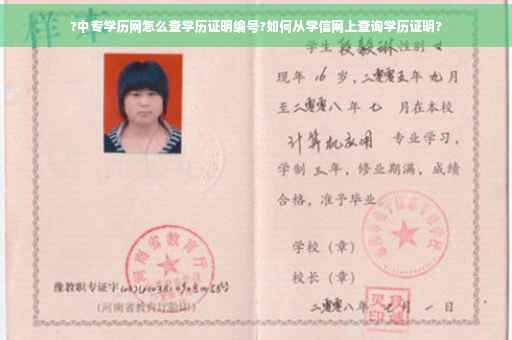 ?中专学历网怎么查学历证明编号?如何从学信网上查询学历证明?
样本
学生段毅琳性别女
现年16岁,二零零五年九月
至二零零八年七月在本校
计算机应用 专业学习,
学制三年,修业期满,成绩
合格,准予毕业
学校(章)
校长(章)
二零零八年七月一日
河南省教育厅
豫教职专证字
(河南省教育厅验印)